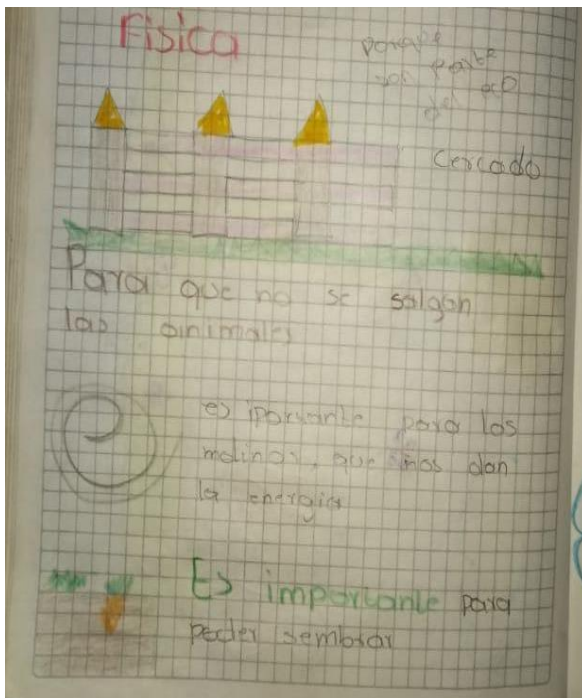 Física
porque
son parte
del
cercado
Para que no se salgan
las animales
es iportante para los
molinos, que nos dan
la energia
Es importante para
poder sembrar